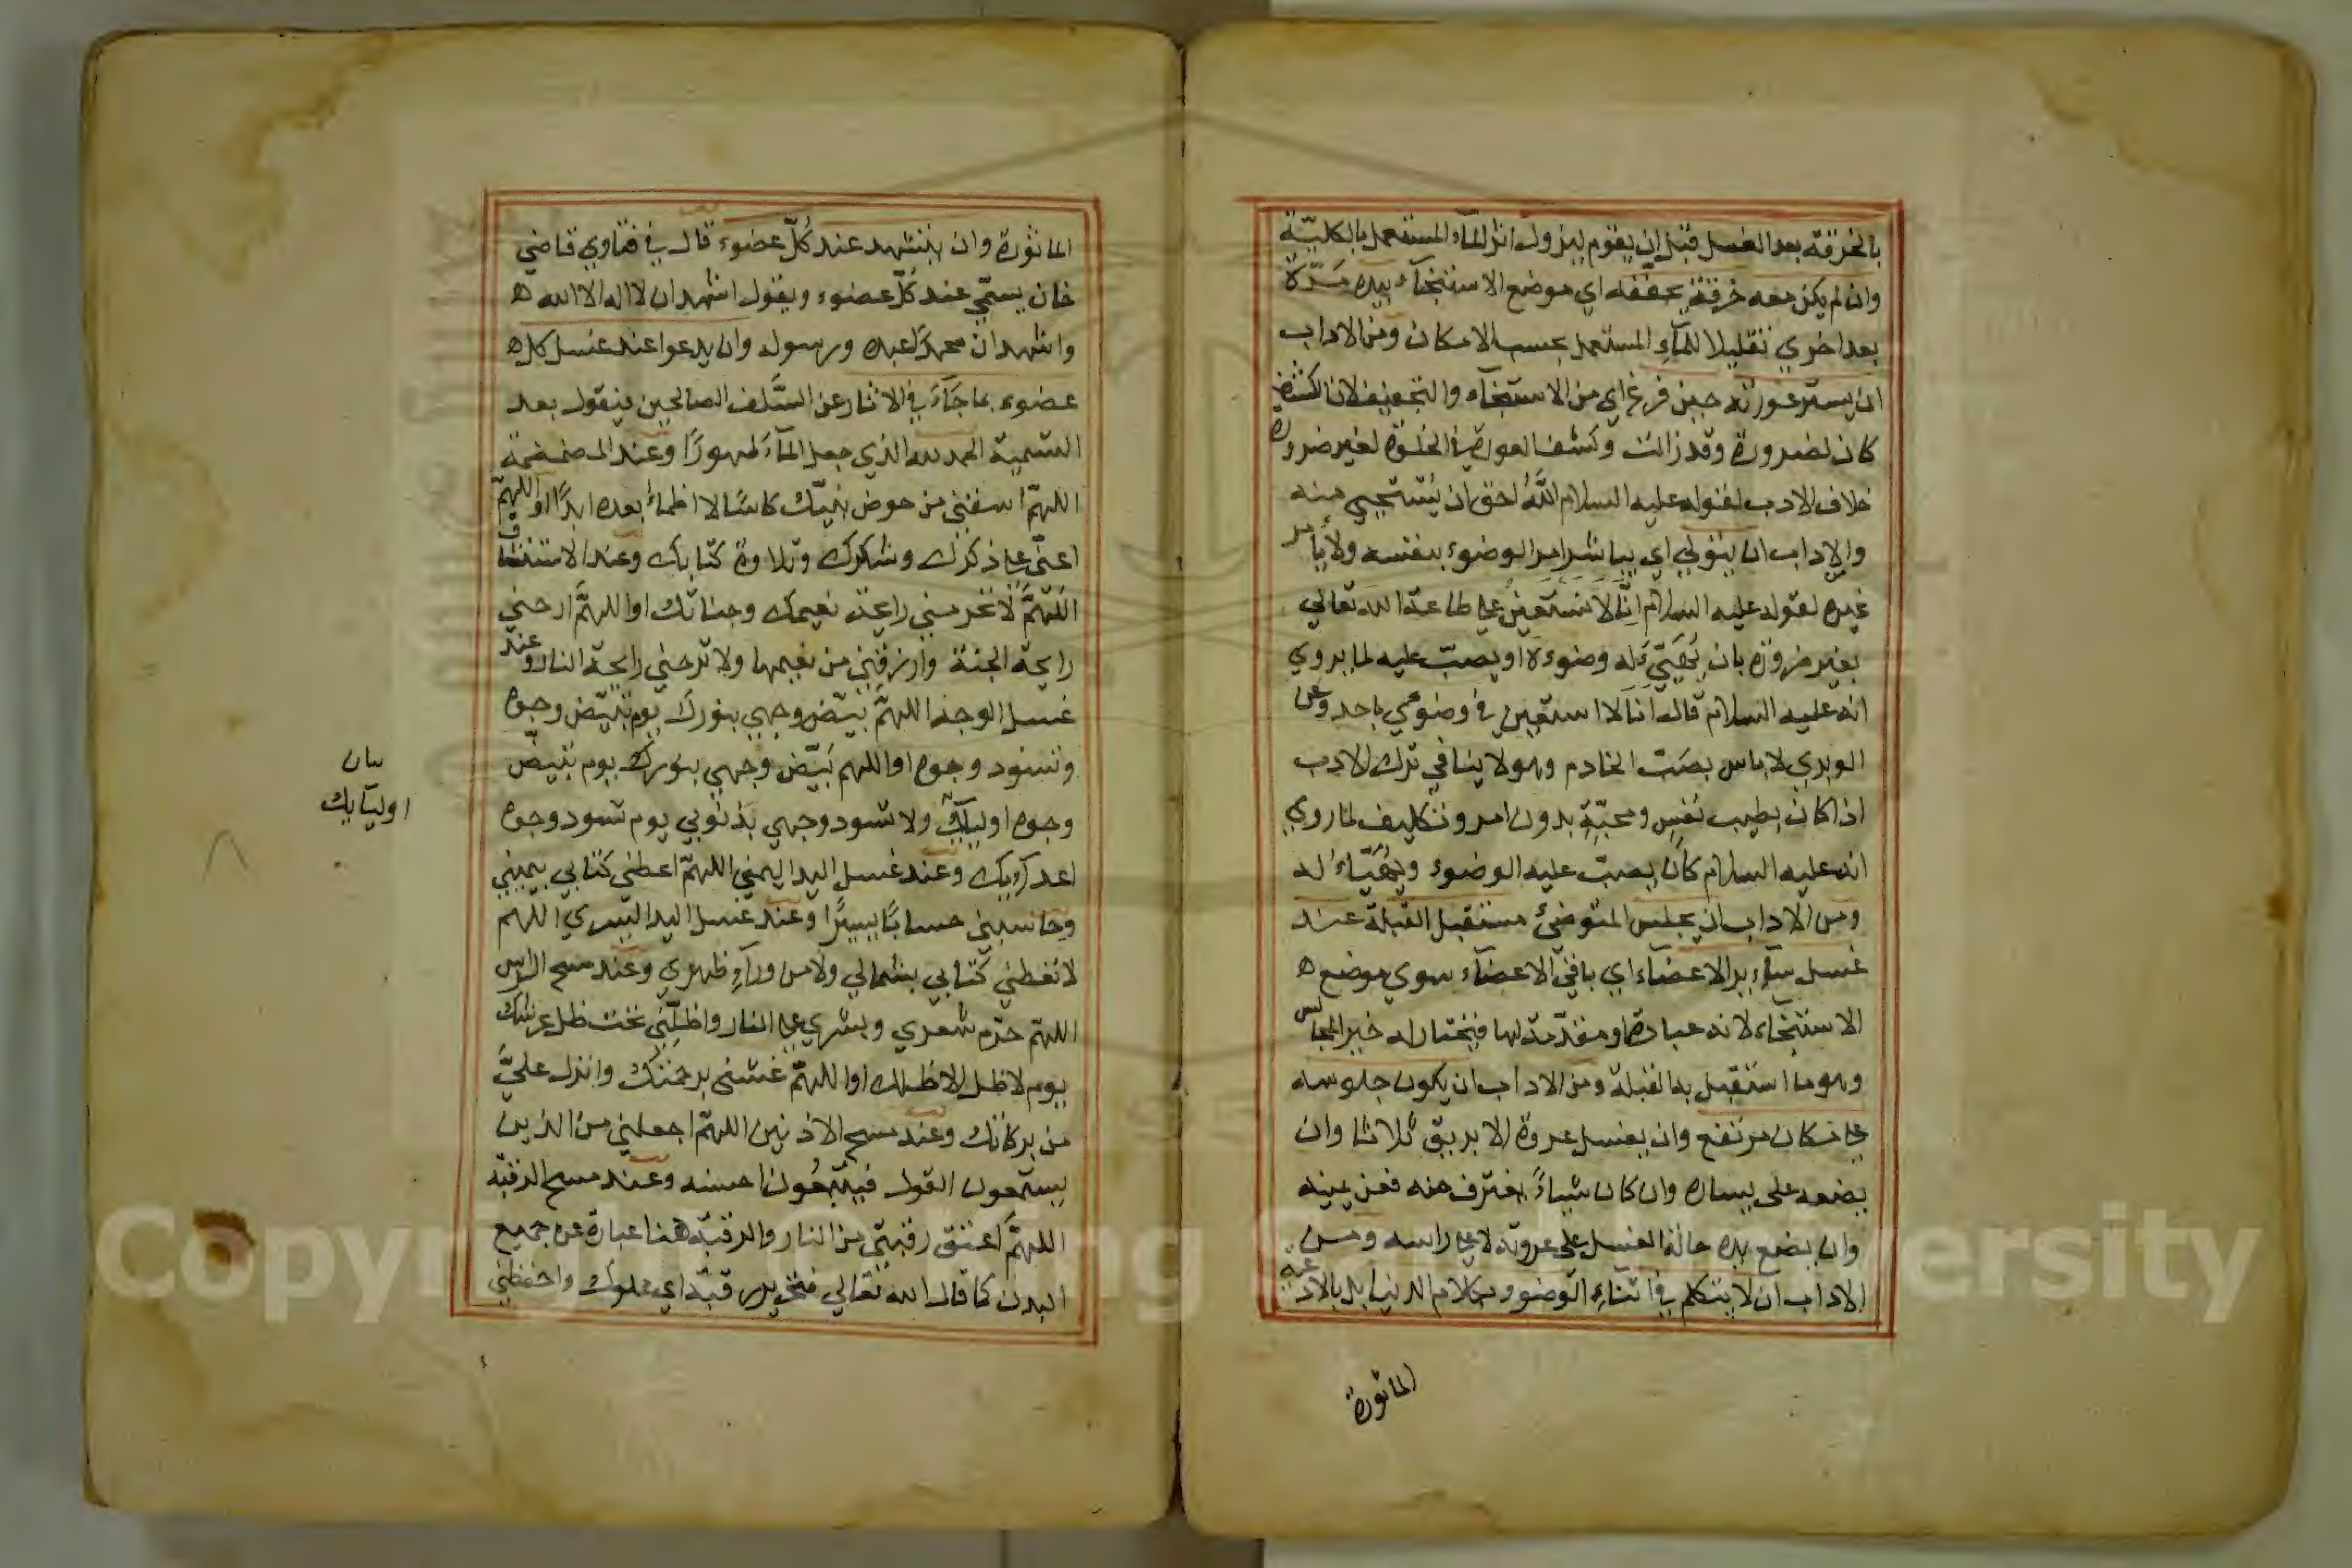 بالخرقة بعد الغسل قبل ان يقوم ليزول اثر المآء المستعمل بالكليّة
وان لم يكن معه خرقة يجففه اي موضع الاستنجآء بيده مَرّة
بعد اخري تقليلا للمآءِ المستعمل بحسب الامكان ومن الاداب
ان يستر عورته حين فرغ اي من الاستنجآء والتجفيف لان الكشف
كان لضرورة وقد زالت وكشف العورة في الخلوة لغير ضرورة
خلاف الادب لقوله عليه السلام اللهُ احق ان يُسْتَحيي منه
والاداب ان يتولي اي يباشر امر الوضوء بنفسه ولا يأمر
غيره لقوله عليه السلام انَّا لا نستعِينُ علي طاعة الله تعالي
بغير ضرورة بان يُهَيّئَ له وضوءه او يصبّ عليه لما يروي
انه عليه السلام قال انَا لا استعين في وضوءي باحد وعن
الوبري لا باس بصَبّ الخادم وهو لا ينافي ترك الادب
اذا كان بطيب نفسٍ ومحبّةٍ بدون امر وتكليف لما روي
انه عليه السلام كان يصبّ عليه الوضوء ويُهَيّاءُ له
ومن الاداب ان يجلس المتوضئ مستقبل القبلة عند
غسل سآء ير الاعضآء اي باقي الاعضآء سوي موضع ه
الاستنجآء لانه عبادة او مقدّمة لها فيختار له خير المجالس
وهو ما استقبل به القبلة ومن الاداب ان يكون جلوسه
علي مكان مرتفع وان يغسل عروة الابريق ثلاثا وان
يضعه على يساره وان كان شياءً يغترف منه فعن يمينه
وان يضع يده حالة الغسل على عروته لا علي راسه ومن
الاداب ان لا يتكلم في اثنآءِ الوضوء بكلام الدنيا بل بالادعية
الماثورة
الماثورة وان يتشهد عند كُلّ عضوء قال في فتاوي قاضي
خان يسمّي عند كُلّ عضوء ويقول اشهد ان لا اله الا الله ه
واشهد ان محمدًا عبده ورسوله وان يدعوا عند غسل كل ه
عضوء بما جَآءَ في الاثار عن السَّلف الصالحين فيقول بعد
التسمية الحمد لله الذي جعل المآءَ طهورًا وعند المضمضة
اللهمّ اسقني من حوض نبيّك كاسًا لا اظماءُ بعده ابدًا او اللهمّ
اعنّي علي ذكرك وشكرك وتلاوة كتابك وعند الاستنشاق
اللهُمَّ لا تحرمني رايحة نعيمك وجناتك او اللهمَّ ارحني
رايحة الجنة وارزقني من نعيمها ولا ترحني رايحة النار وعند
غسل الوجه اللهمَّ بيّض وجهي بنورك يوم تبيّض وجوه
وتسود وجوه او اللهم بَيّض وجهي بنورك يوم تبيضّ
وجوه اوليآيك ولا تسود وجهي بذنوبي يوم تسود وجوه
اعدآيك وعند غسل اليد اليمني اللهمّ اعطني كتابي بيميني
وحاسبني حسابًا يسيرًا وعند غسل اليد اليسري اللهم
لا تعطني كتابي بشمالي ولا من ورآءِ ظهري وعند مسح الراس
اللهمّ حرّم شعري وبشري علي النار واظلّني تحت ظل عرشك
يوم لا ظل الا ظلك او اللهمّ غشني برحمتك وانزل عليَّ
من بركاتك وعند مسح الاذنين اللهمّ اجعلني من الذين
يستمعون القول فيتّبعُون احسنه وعند مسح الرقبة
اللهمَّ اعتق رقبتي من النار والرقبة هنا عبارة عن جميع
البدن كما قال الله تعالي فتحرير رقبة اي مملوك واحفظني
بيان
اوليآيك